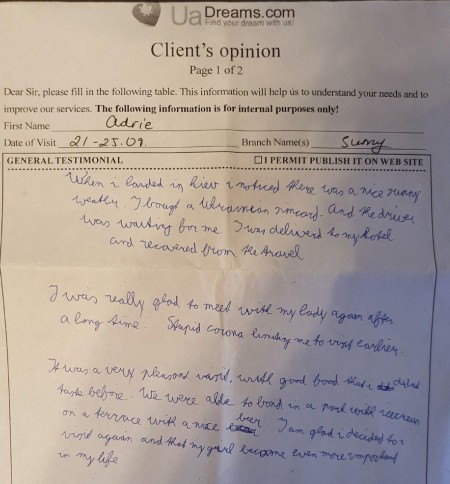 UaDreams.com
Find your dream with us!
Client's opinion
Page 1 of 2
Dear Sir, please fill in the following table. This information will help us to understand your needs and to
improve our services. The following information is for internal purposes only!
First Name Adrie
Date of Visit 21-25.09. Branch Name(s) Sumy
GENERAL TESTIMONIAL ☐ I PERMIT PUBLISH IT ON WEB SITE
When i landed in kiev i noticed there was a nice sunny
weather. I bougt a Ukrainean simcard. And the driver
was waiting for me. I was delivered to my hotel
and recovered from the travel
I was really glad to meet with my lady again after
a long time. Stupid corona limiting me to visit earlier.
It was a very pleasand visit, with good food that i didnt
taste before. We were able to bond in a park with
on a terrace with a nice beer. I am glad i decided to
visit again and that my girl become even more important
in my life